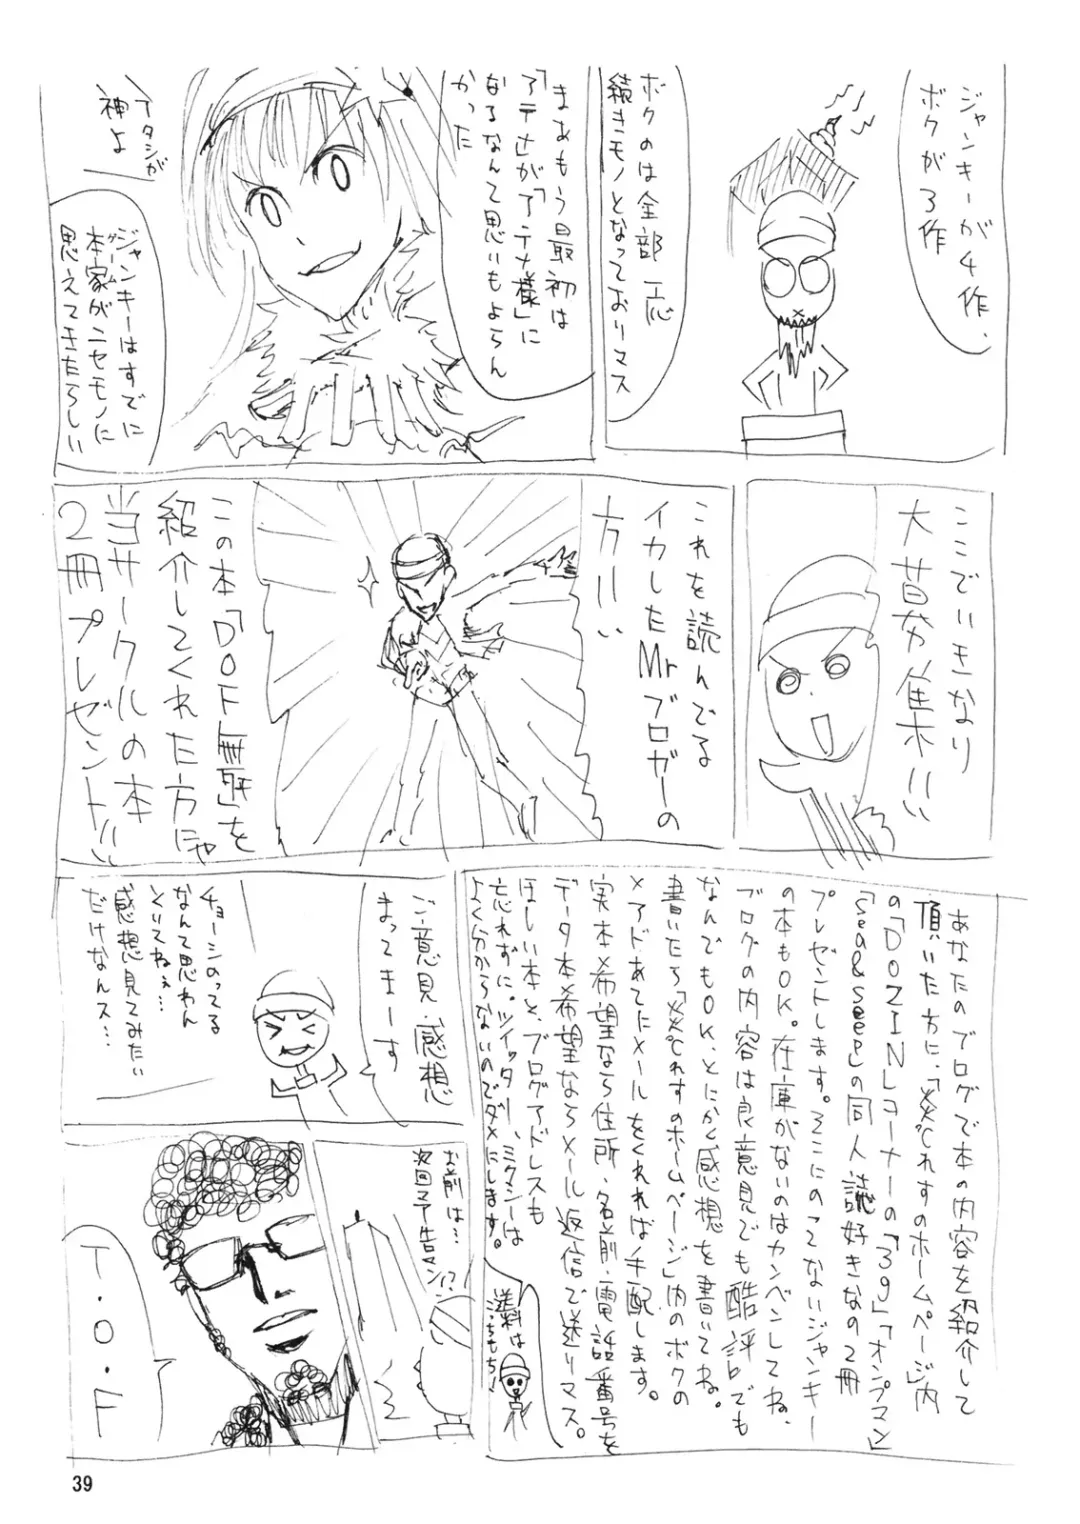 ジャンキーが4作、
ボクが3作
ボクのは全部一応
続きモノとなっておりマス
まあもう最初は
「アテナが「アテナ様」に
なるなんて思いもよらん
かった
アタシが
神よ
ジャンキーはすでに
本家がニセモノに
ゲーム
思えてきたらしい
ここでいきなり
大募集!!!
これを読んでる
イカしたMrブロガーの
方!!!
この本「DOF無双」を
紹介してくれた方にゃ
当サークルの本
2冊プレゼント!!!
あなたのブログで本の内容を紹介して
頂いた方に、「××℃れすのホームページ」内
の「DOZIN」コーナーの「39」「オンプマン」
「sea&seep」の同人誌好きなの2冊
プレゼントします。そこにのってないジャンキー
の本もOK。在庫がないのはカンベンしてね、
ブログの内容は良意見でも酷評でも
なんでもOK、とにかく感想を書いてね。
書いたら「××℃れすのホームページ」内のボクの
メアドあてにメールをくれれば手配します。
実本希望なら住所・名前・電話番号を
データ本希望ならメール返信で送りマス。
ほしい本と、ブログアドレスも
忘れずに。ツイッター、ミクシーは
よく分からないのでダメにします。
送料は
こっちもち!
ご意見・感想
まってまーす
チョーシのってる
なんて思わん
といてねぇ…
感想見てみたい
だけなんス…
お前は…
次回予告マン!?
T・O・F
39